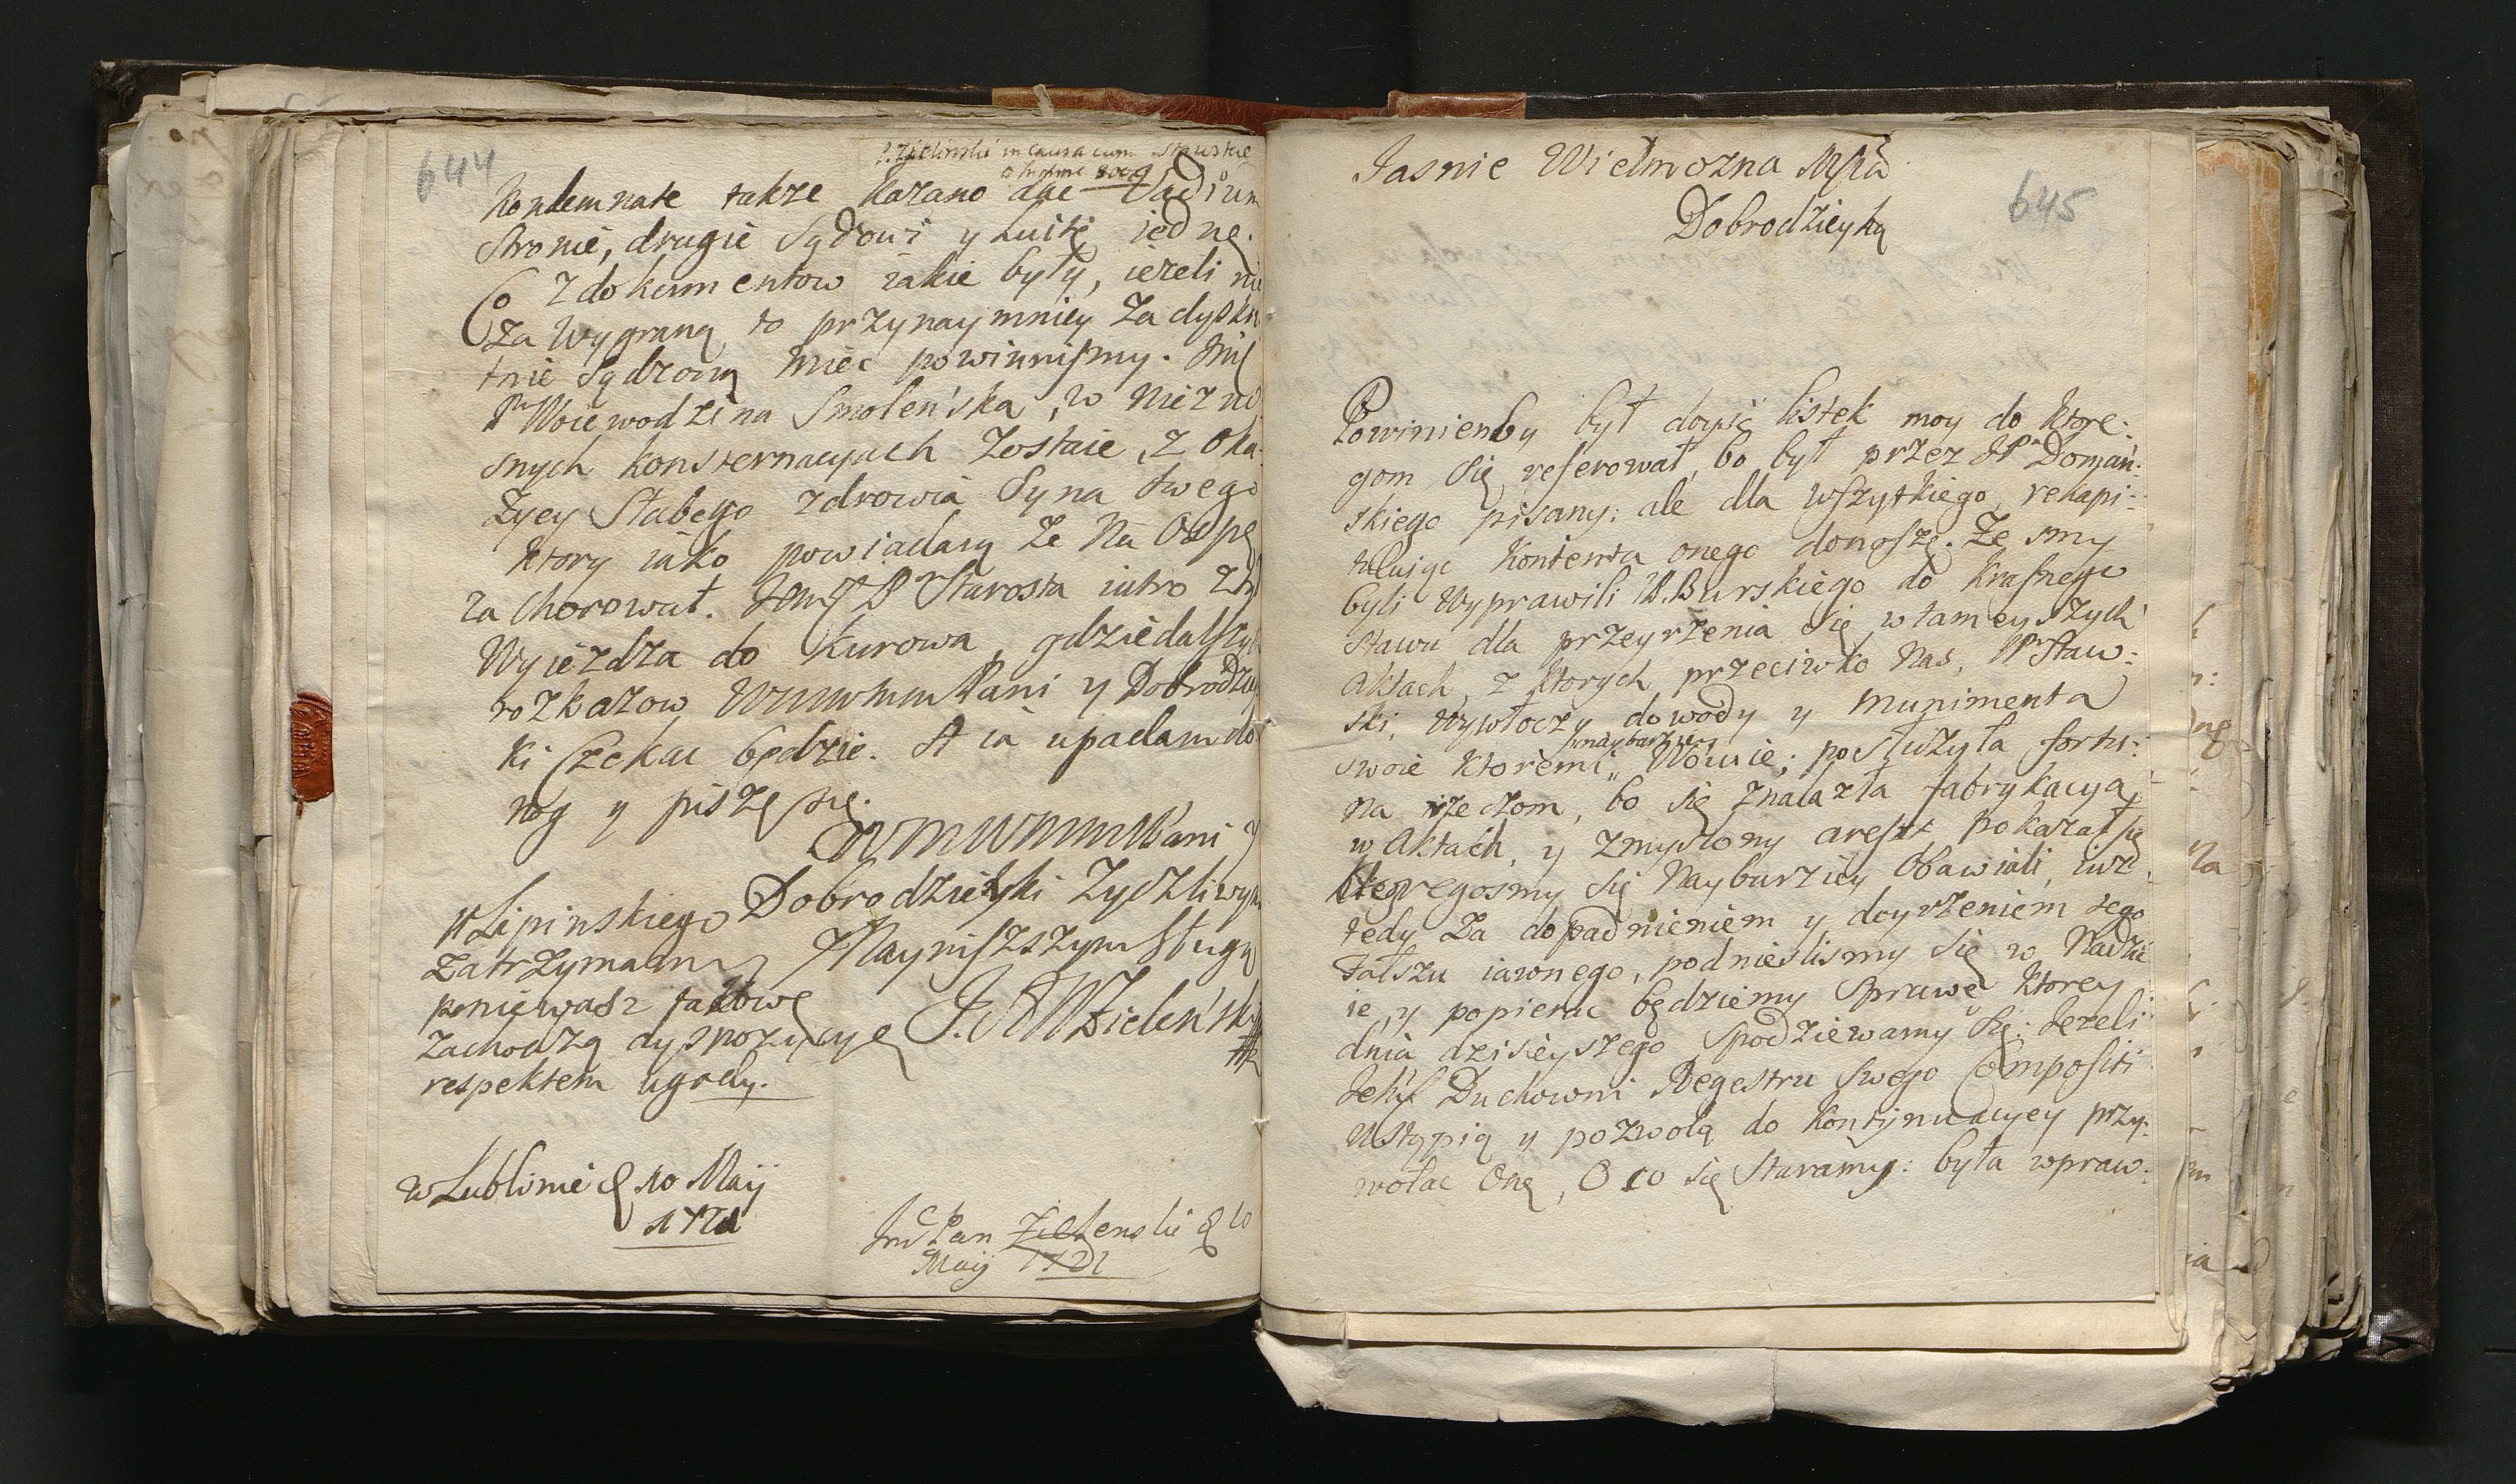 644
P. Zielinski in causa cum Stawskie
o summe 8000
Kondemnate takze kazano dae Vadium
stronie, drugie Sądowi y Luitę iedne.
Co z dokumentow iakie były, iezeli nie
za Wygraną to przynaymniey Za dyskre
tnie Sądzoną miec powinnismy.
Woiewodzina Smoleńska, w niezno
snych konsternacyach zostaie, z Oka
zyey Słabego zdrowia Syna swego
ktory iako powiadaią Ze Na Ospę
zachorował. Starosta iutro
Wyiezdza do Kurowa, gdzie dalszych
rozkazow WMWMMPani y Dobrodziey
ki Czekac będzie. A ia upadam do
nog y piszę się.
WMWMMPani y
Dobrodzieyki Zyczliwym
y Nayniszszym Sługą
Zieleńsky
Lipinskiego
zatrzymam
poniewasz takowe
zachodzą dyspozycye
respektem ugody.
w Lublinie d 10 Maij
1721
Pan Zielenski d 10
Maij 1721
Iasnie Wielmozna MPia
Dobrodzieyko
645
Powinienby był doysc listek moy do ktore:
gom się referował, bo był przez JP Doman:
skiego pisany: ale dla wszytkiego, rekapi:
tuluiąc Kontenta onego donoszę. Ze smy
byli Wyprawili P. Burskiego do Krasnego
stawu dla przeyrzenia się w tameyszych
Aktach, z ktorych przeciwko Nas, Staw:
ski, Wywłoczy dowody y munimenta
swoie ktoremi Woiuie; posłuzyła fortu:
na rzeczom, bo się znalazła fabrykacya
w Aktach, y zmyslony areszt pokazał się
ktoregosmy się Naybarziey Obawiali, iuz
tedy Za dopadnieniem y doyrzeniem tego
fałszu iawnego, podnieslismy się w Nadzie
ie y popierac będziemy Sprawę ktorey
dnia dzisieyszego Spodziewamy się: Iezeli
Duchowni Regestru Swego Compositi
Ustąpią y pozwolą do Kontynuacyey przy:
wołac Onę, O co się Staramy: była wpraw: